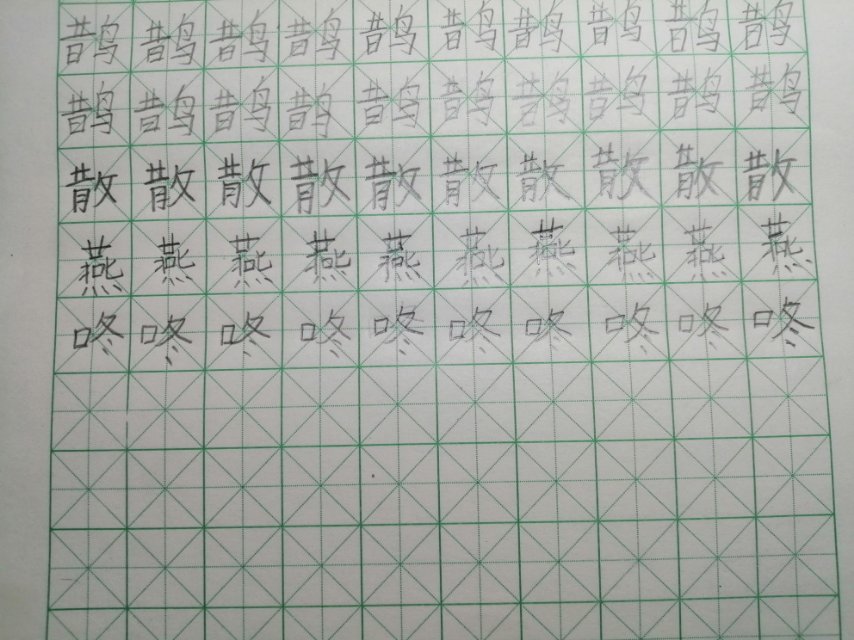 鹊鹊鹊鹊鹊鹊鹊鹊鹊鹊
鹊鹊鹊鹊鹊鹊鹊鹊鹊鹊
散散散散散散散散散散
燕燕燕燕燕燕燕燕燕燕
咚咚咚咚咚咚咚咚咚咚